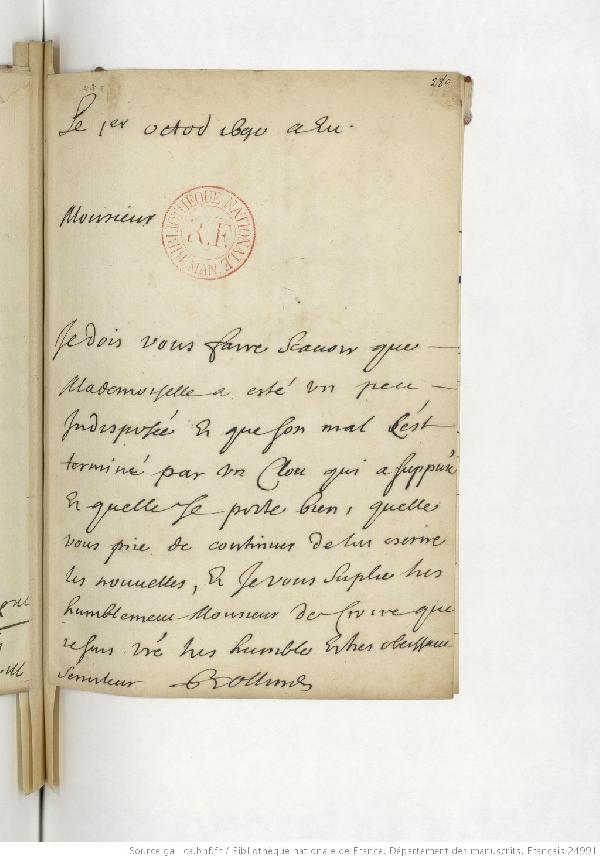 280
Le 1er octob 1690 a Eu.
Monsieur
BIBLIOTHÈQUE NATIONALE MAN.
R.F.
Je dois vous faire scavoir que
Mademoiselle a esté un peu
Indisposée Et que son mal s'est
terminé par un Clou qui a suppuré
Et quelle se porte bien, quelle
vous prie de continuer de luy escrire
les nouvelles, Et Je vous suplie tres
humblement Monsieur de croire que
je suis vre tres humble Et tres obeissant
serviteur
Source gallica.bnf.fr / Bibliothèque nationale de France. Département des manuscrits. Français 24991